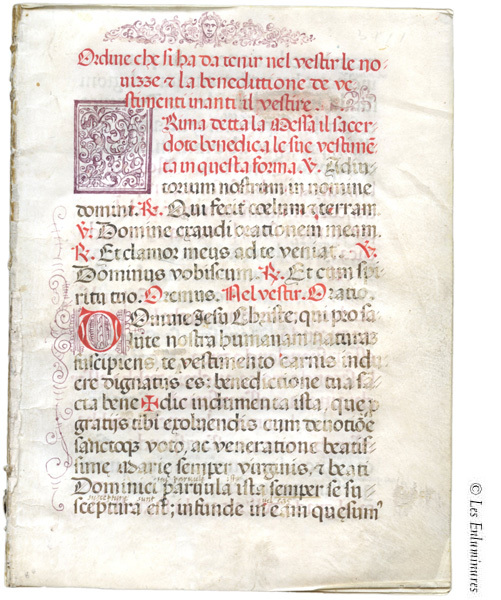 Ordine che si ha da tenir nel vestir le no-
uizze & la beneduttione de ve-
stimenti inanti il vestire.
PRima detta la Messa il sacer-
dote benedica le sue vestimē-
ta in questa forma. V. Adiu-
torium nostrum in nomine
domini. R. Qui fecit cœlum & terram.
V. Domine exaudi orationem meam.
R. Et clamor meus ad te veniat. V.
Dominus vobiscum. R. Et cum spi-
ritu tuo. Oremus. Nel vestir. Oratio.
DOmine Jesu Christe, qui pro sa-
lute nostra humanam naturaz
suscipiens, te vestimento carnis indu-
ere dignatus es: benedictione tua sā-
cta bene✠dic indumenta ista, que p
gratijs tibi exoluendis cum deuotiōe
sanctoqz voto, ac veneratione beatis-
sime Marie semper virginis, & beati
Dominici paruula ista semper se su
sceptura est; infunde in eam quesum'
© Les Enluminures